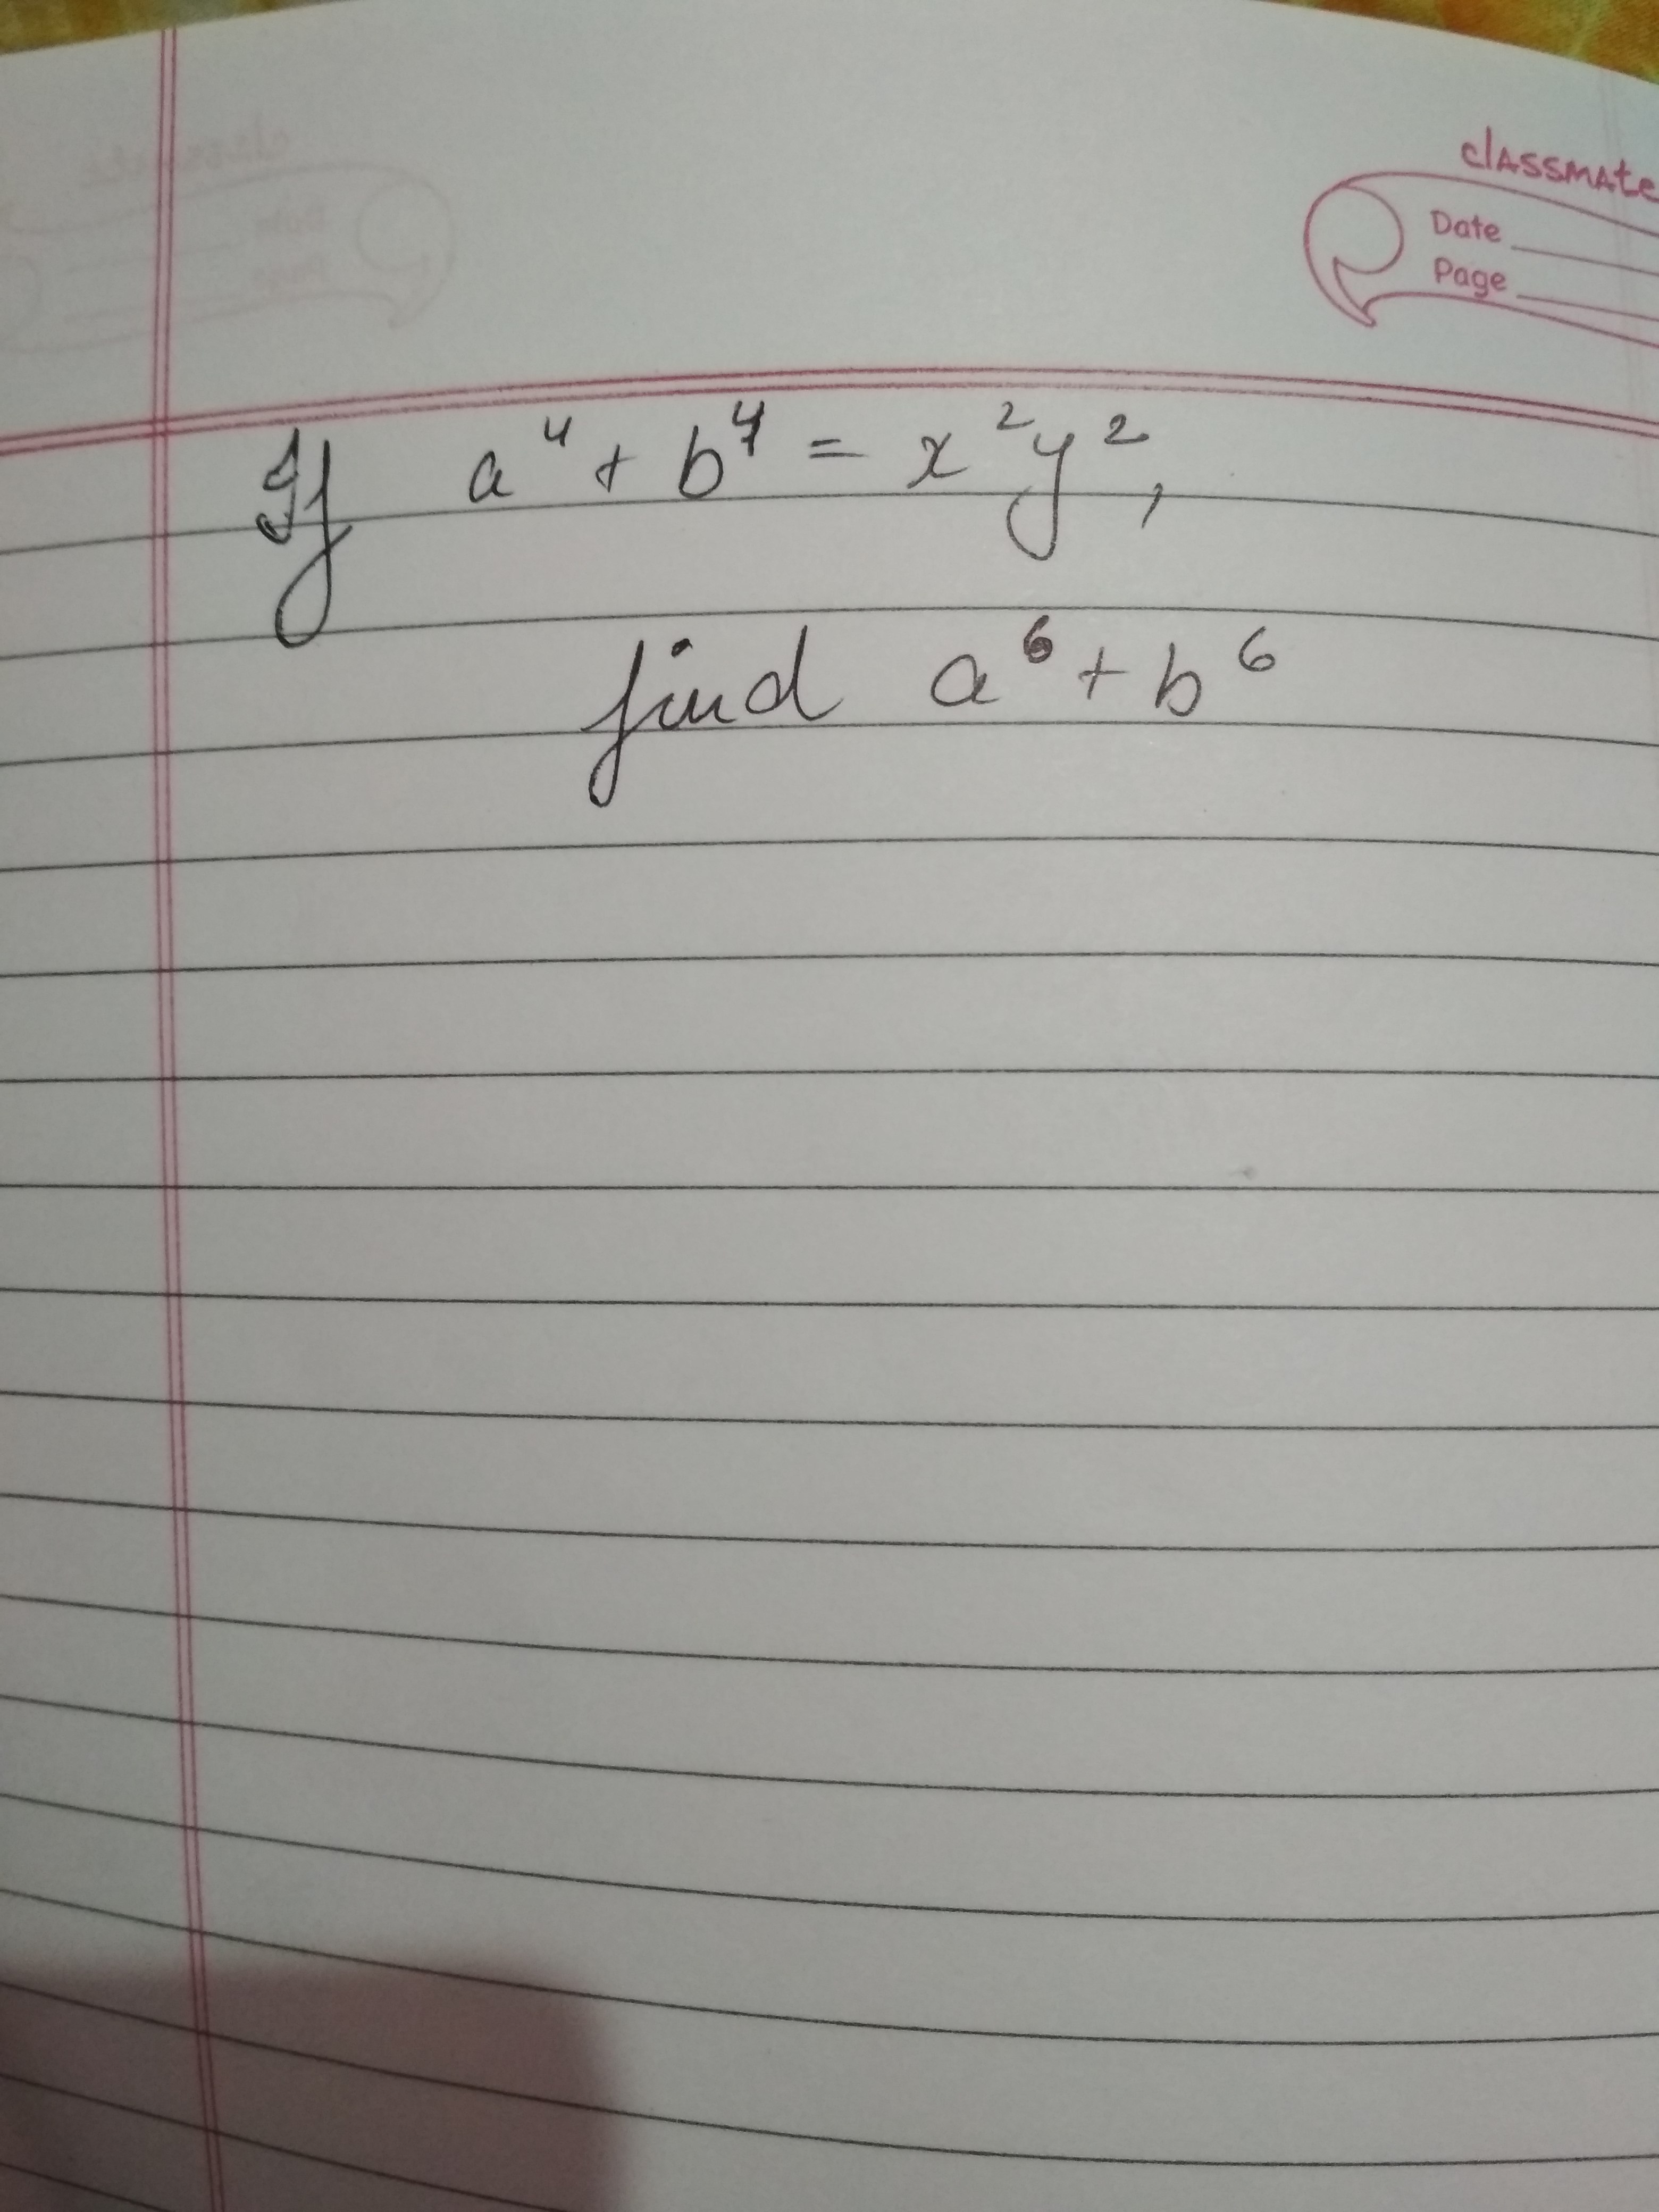 classmate
Date
Page
If a⁴ + b⁴ = x²y²,
find a⁶ + b⁶